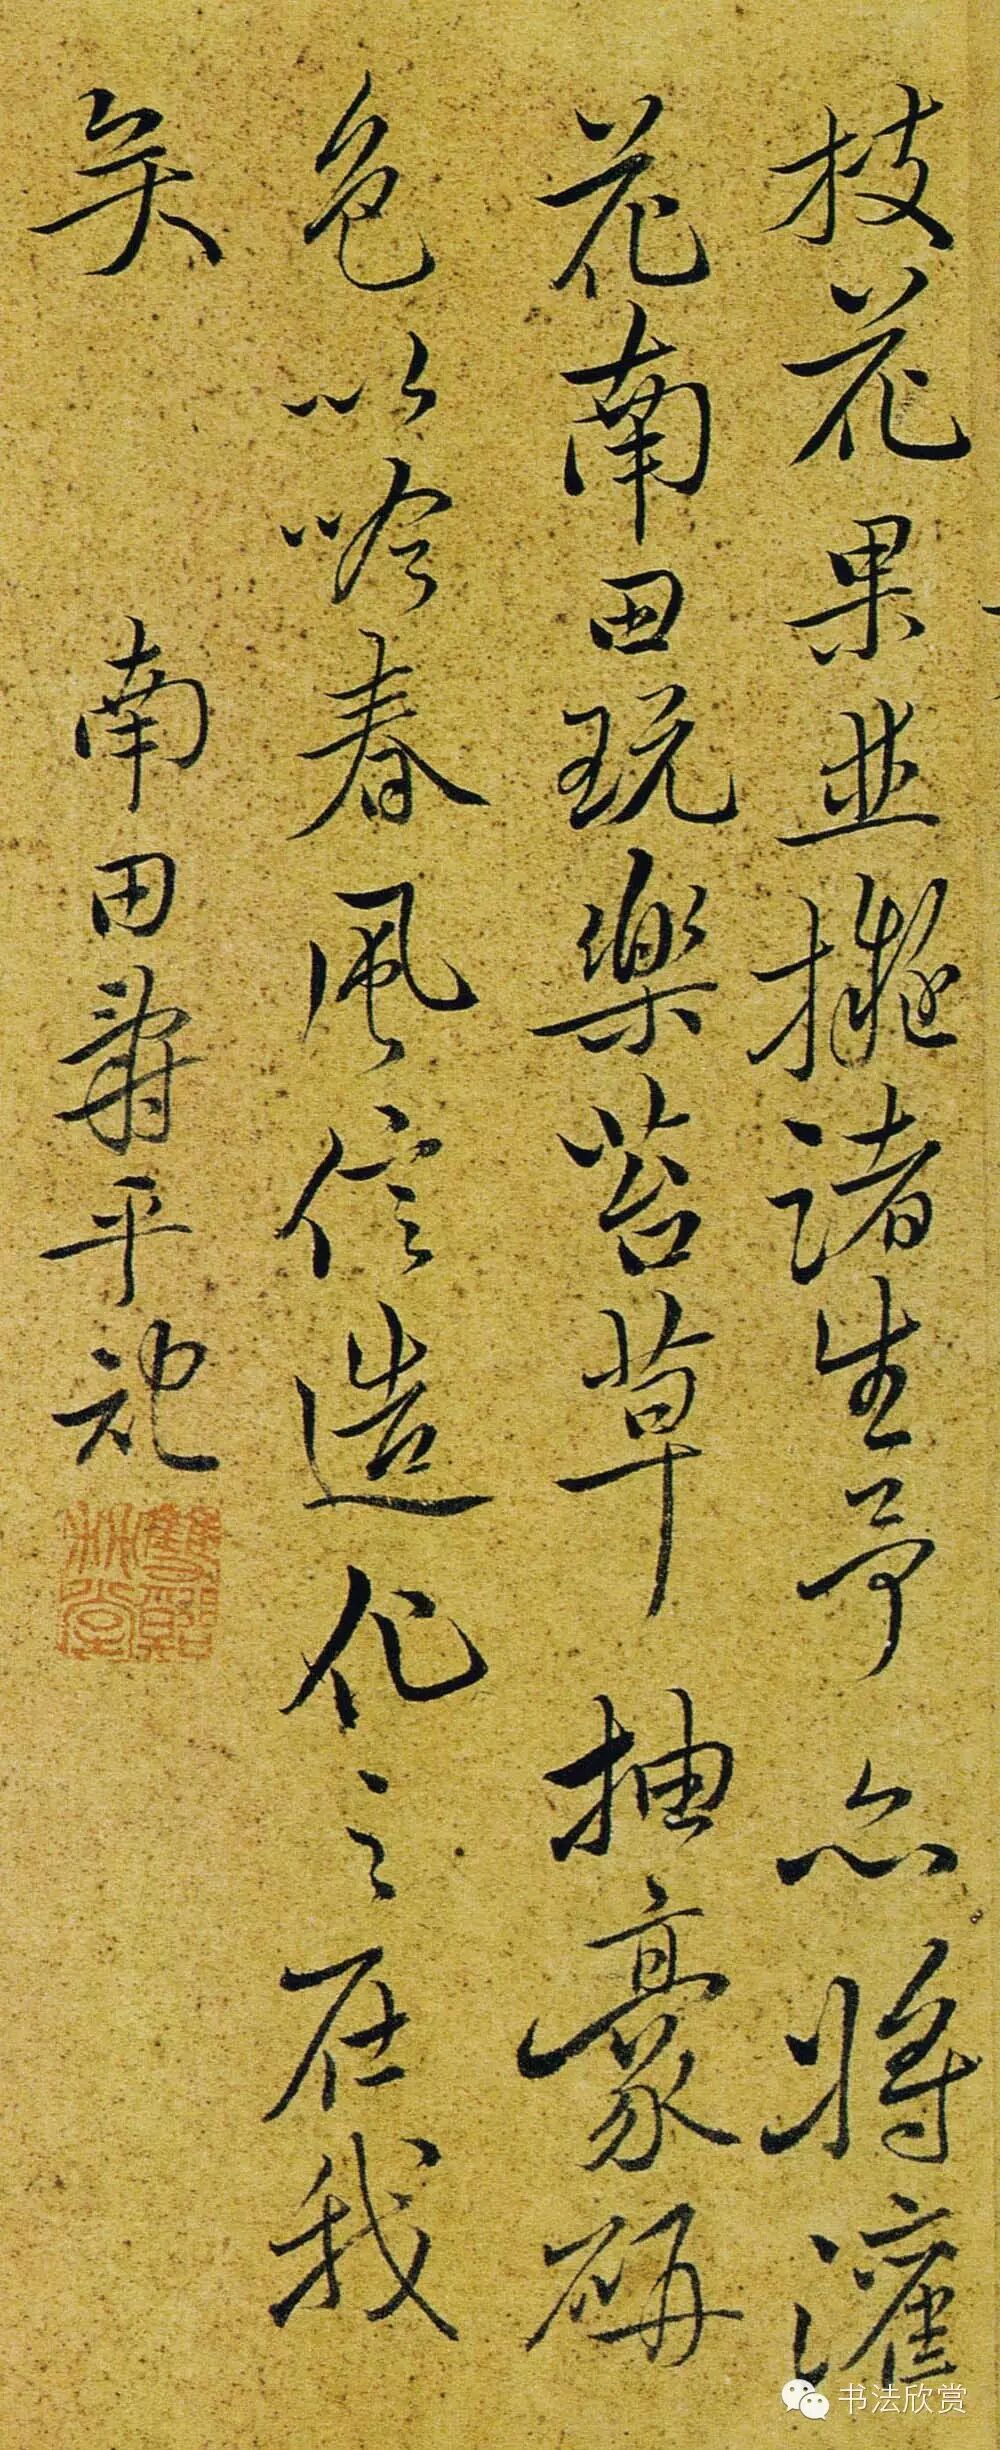 枝花果並擬諸生予亦將灌
花南田玩樂苔草抽豪研
色以吟春風信造化之在我
矣
南田壽平記
书法欣赏